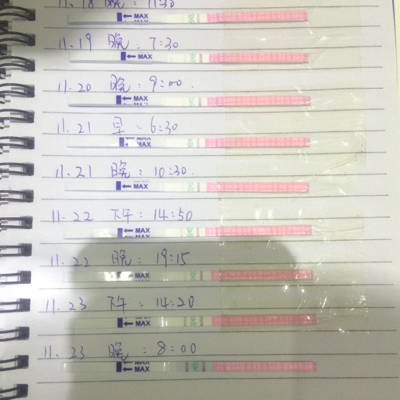 11.18 晚: 11:30
← MAX
11.19 晚: 7:30
← MAX
11.20 晚: 9:00.
← MAX
11.21 早: 6:30
← MAX
11.21 晚: 10:30.
← MAX
11.22 下午: 14:50
← MAX
11.22 晚: 19:15
← MAX
11.23 下午: 14:20
← MAX
11.23 晚: 8:00
← MAX